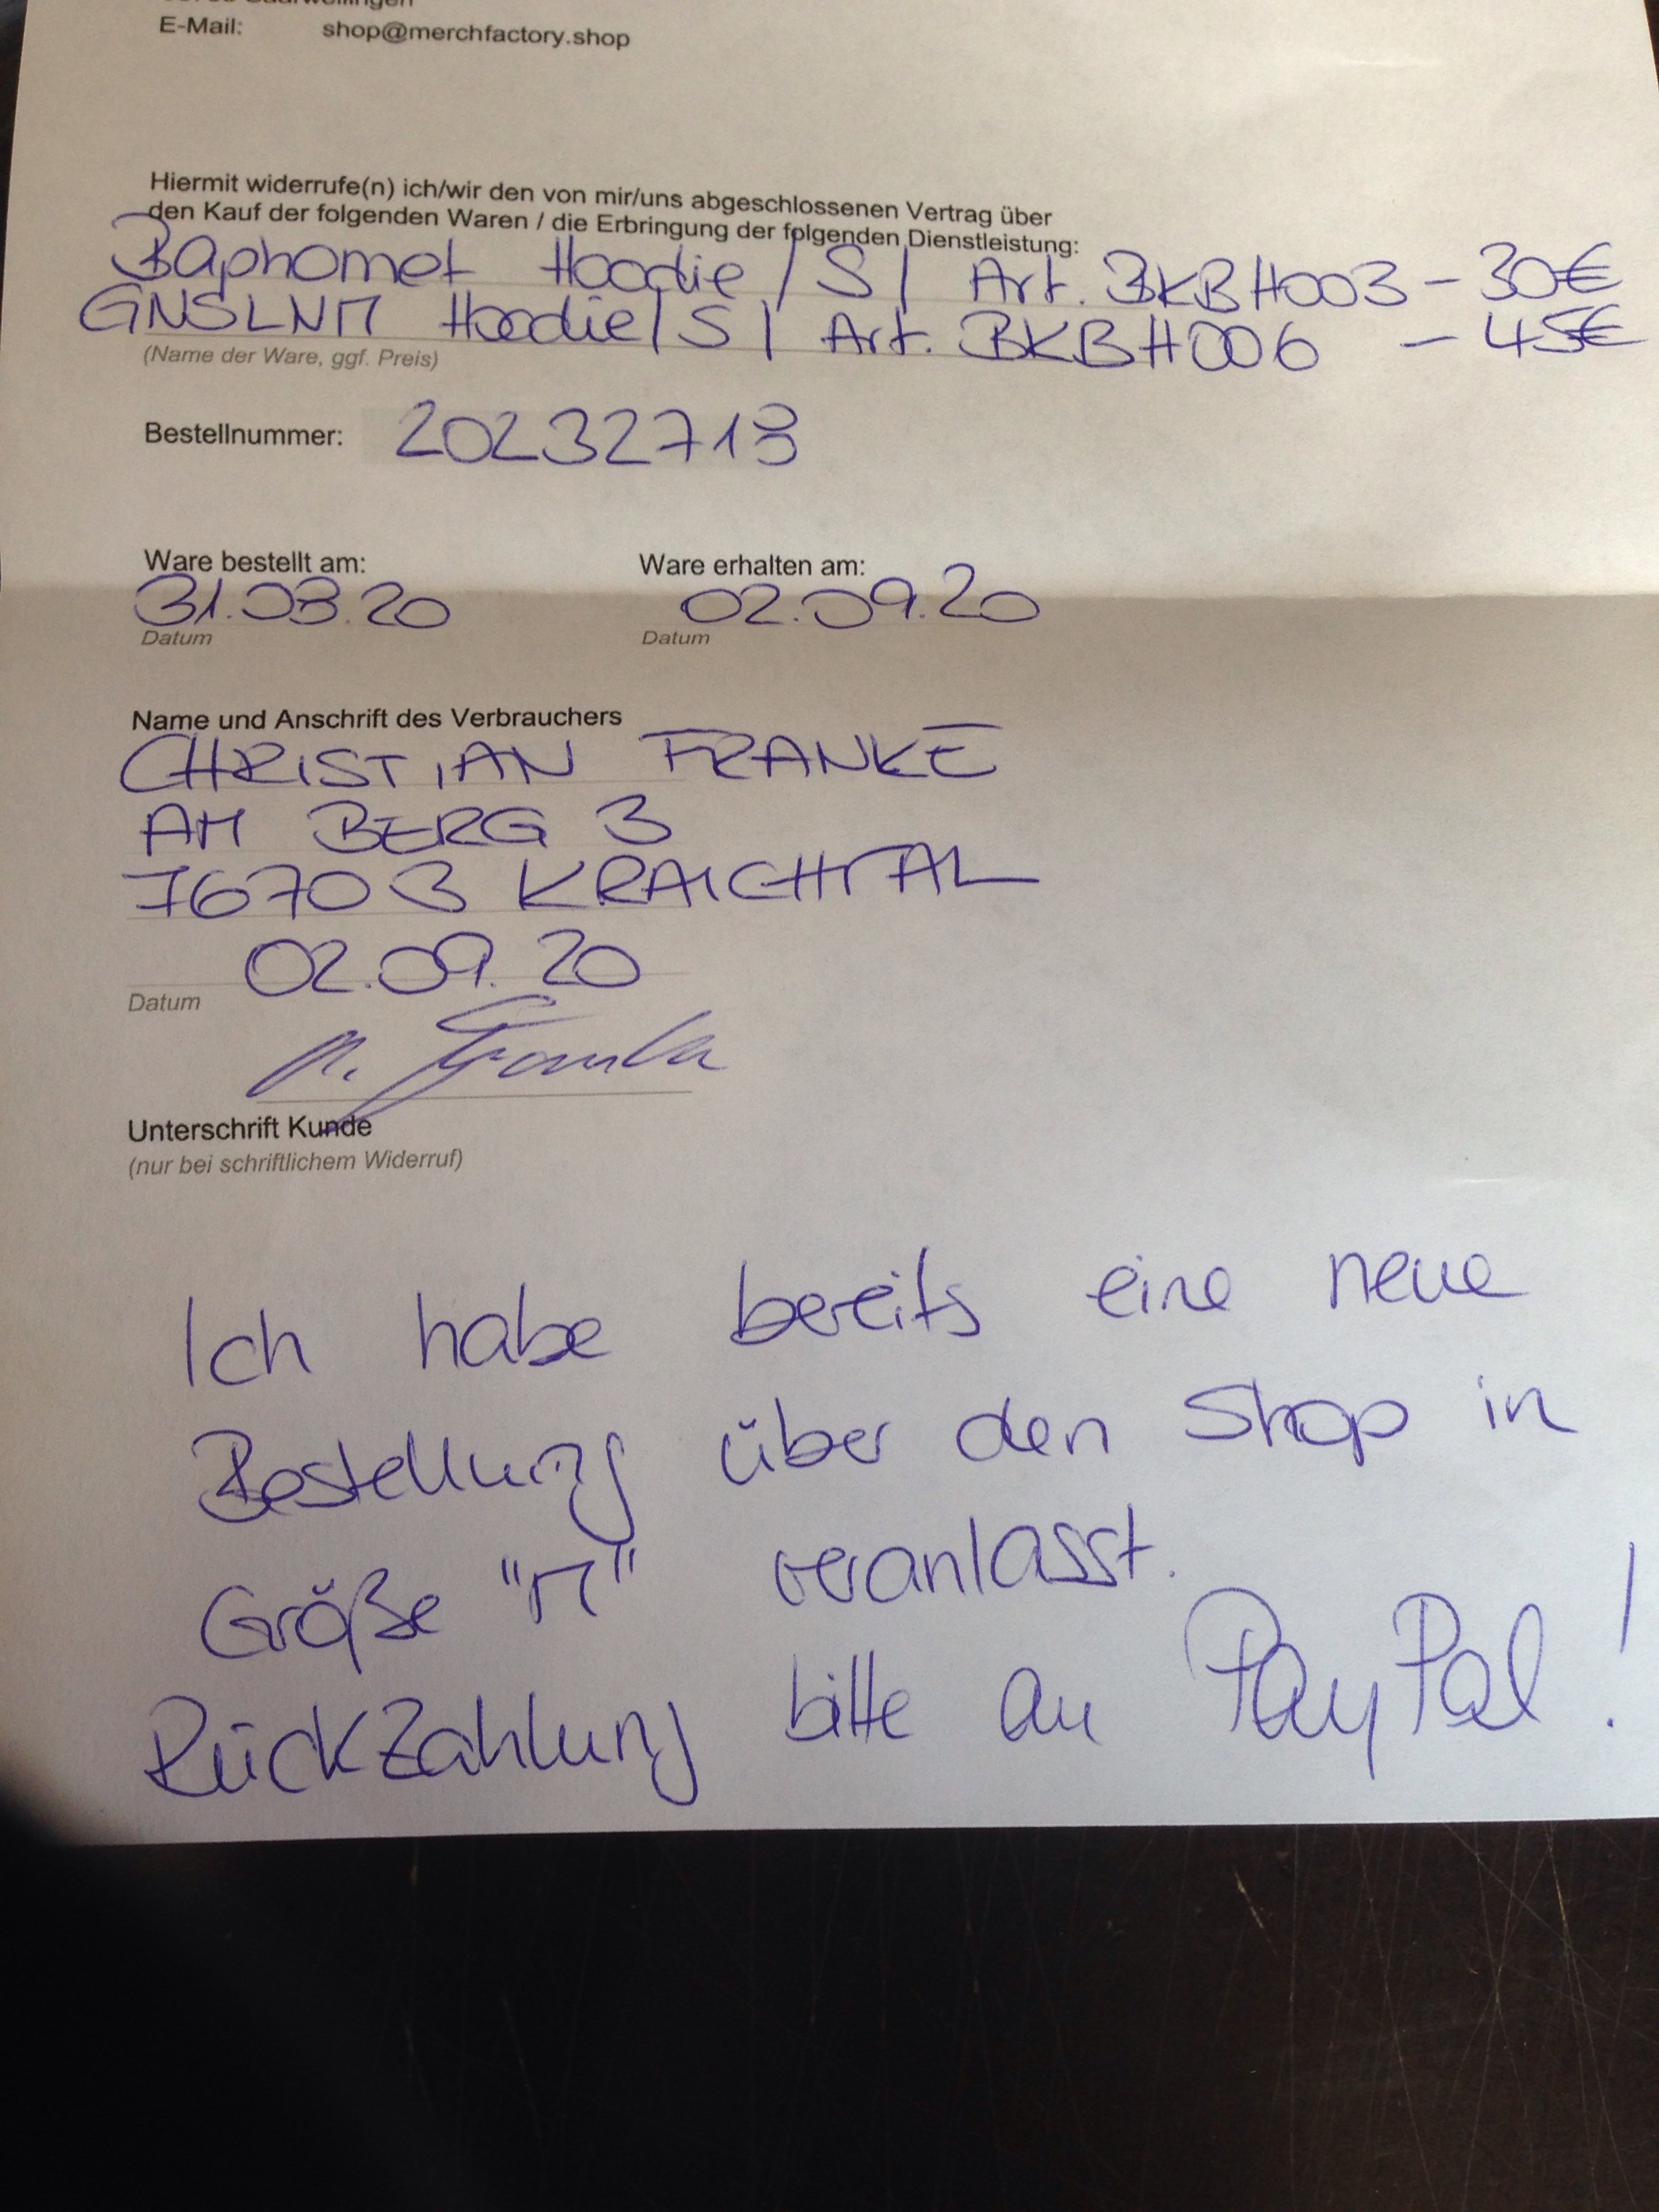 E-Mail: shop@merchfactory.shop
Hiermit widerrufe(n) ich/wir den von mir/uns abgeschlossenen Vertrag über
den Kauf der folgenden Waren / die Erbringung der folgenden Dienstleistung:
Baphomet Hoodie / S / Art. BKBH003 - 30€
GNSLNM Hoodie / S / Art. BKBH006 - 45€
(Name der Ware, ggf. Preis)
Bestellnummer: 20232713
Ware bestellt am: Ware erhalten am:
31.08.20 02.09.20
Datum Datum
Name und Anschrift des Verbrauchers
CHRISTIAN FRANKE
AM BERG 3
76703 KRAICHTAL
02.09.20
Datum
Unterschrift Kunde
(nur bei schriftlichem Widerruf)
Ich habe bereits eine neue
Bestellung über den Shop in
Größe "M" veranlasst.
Rückzahlung bitte an PayPal!